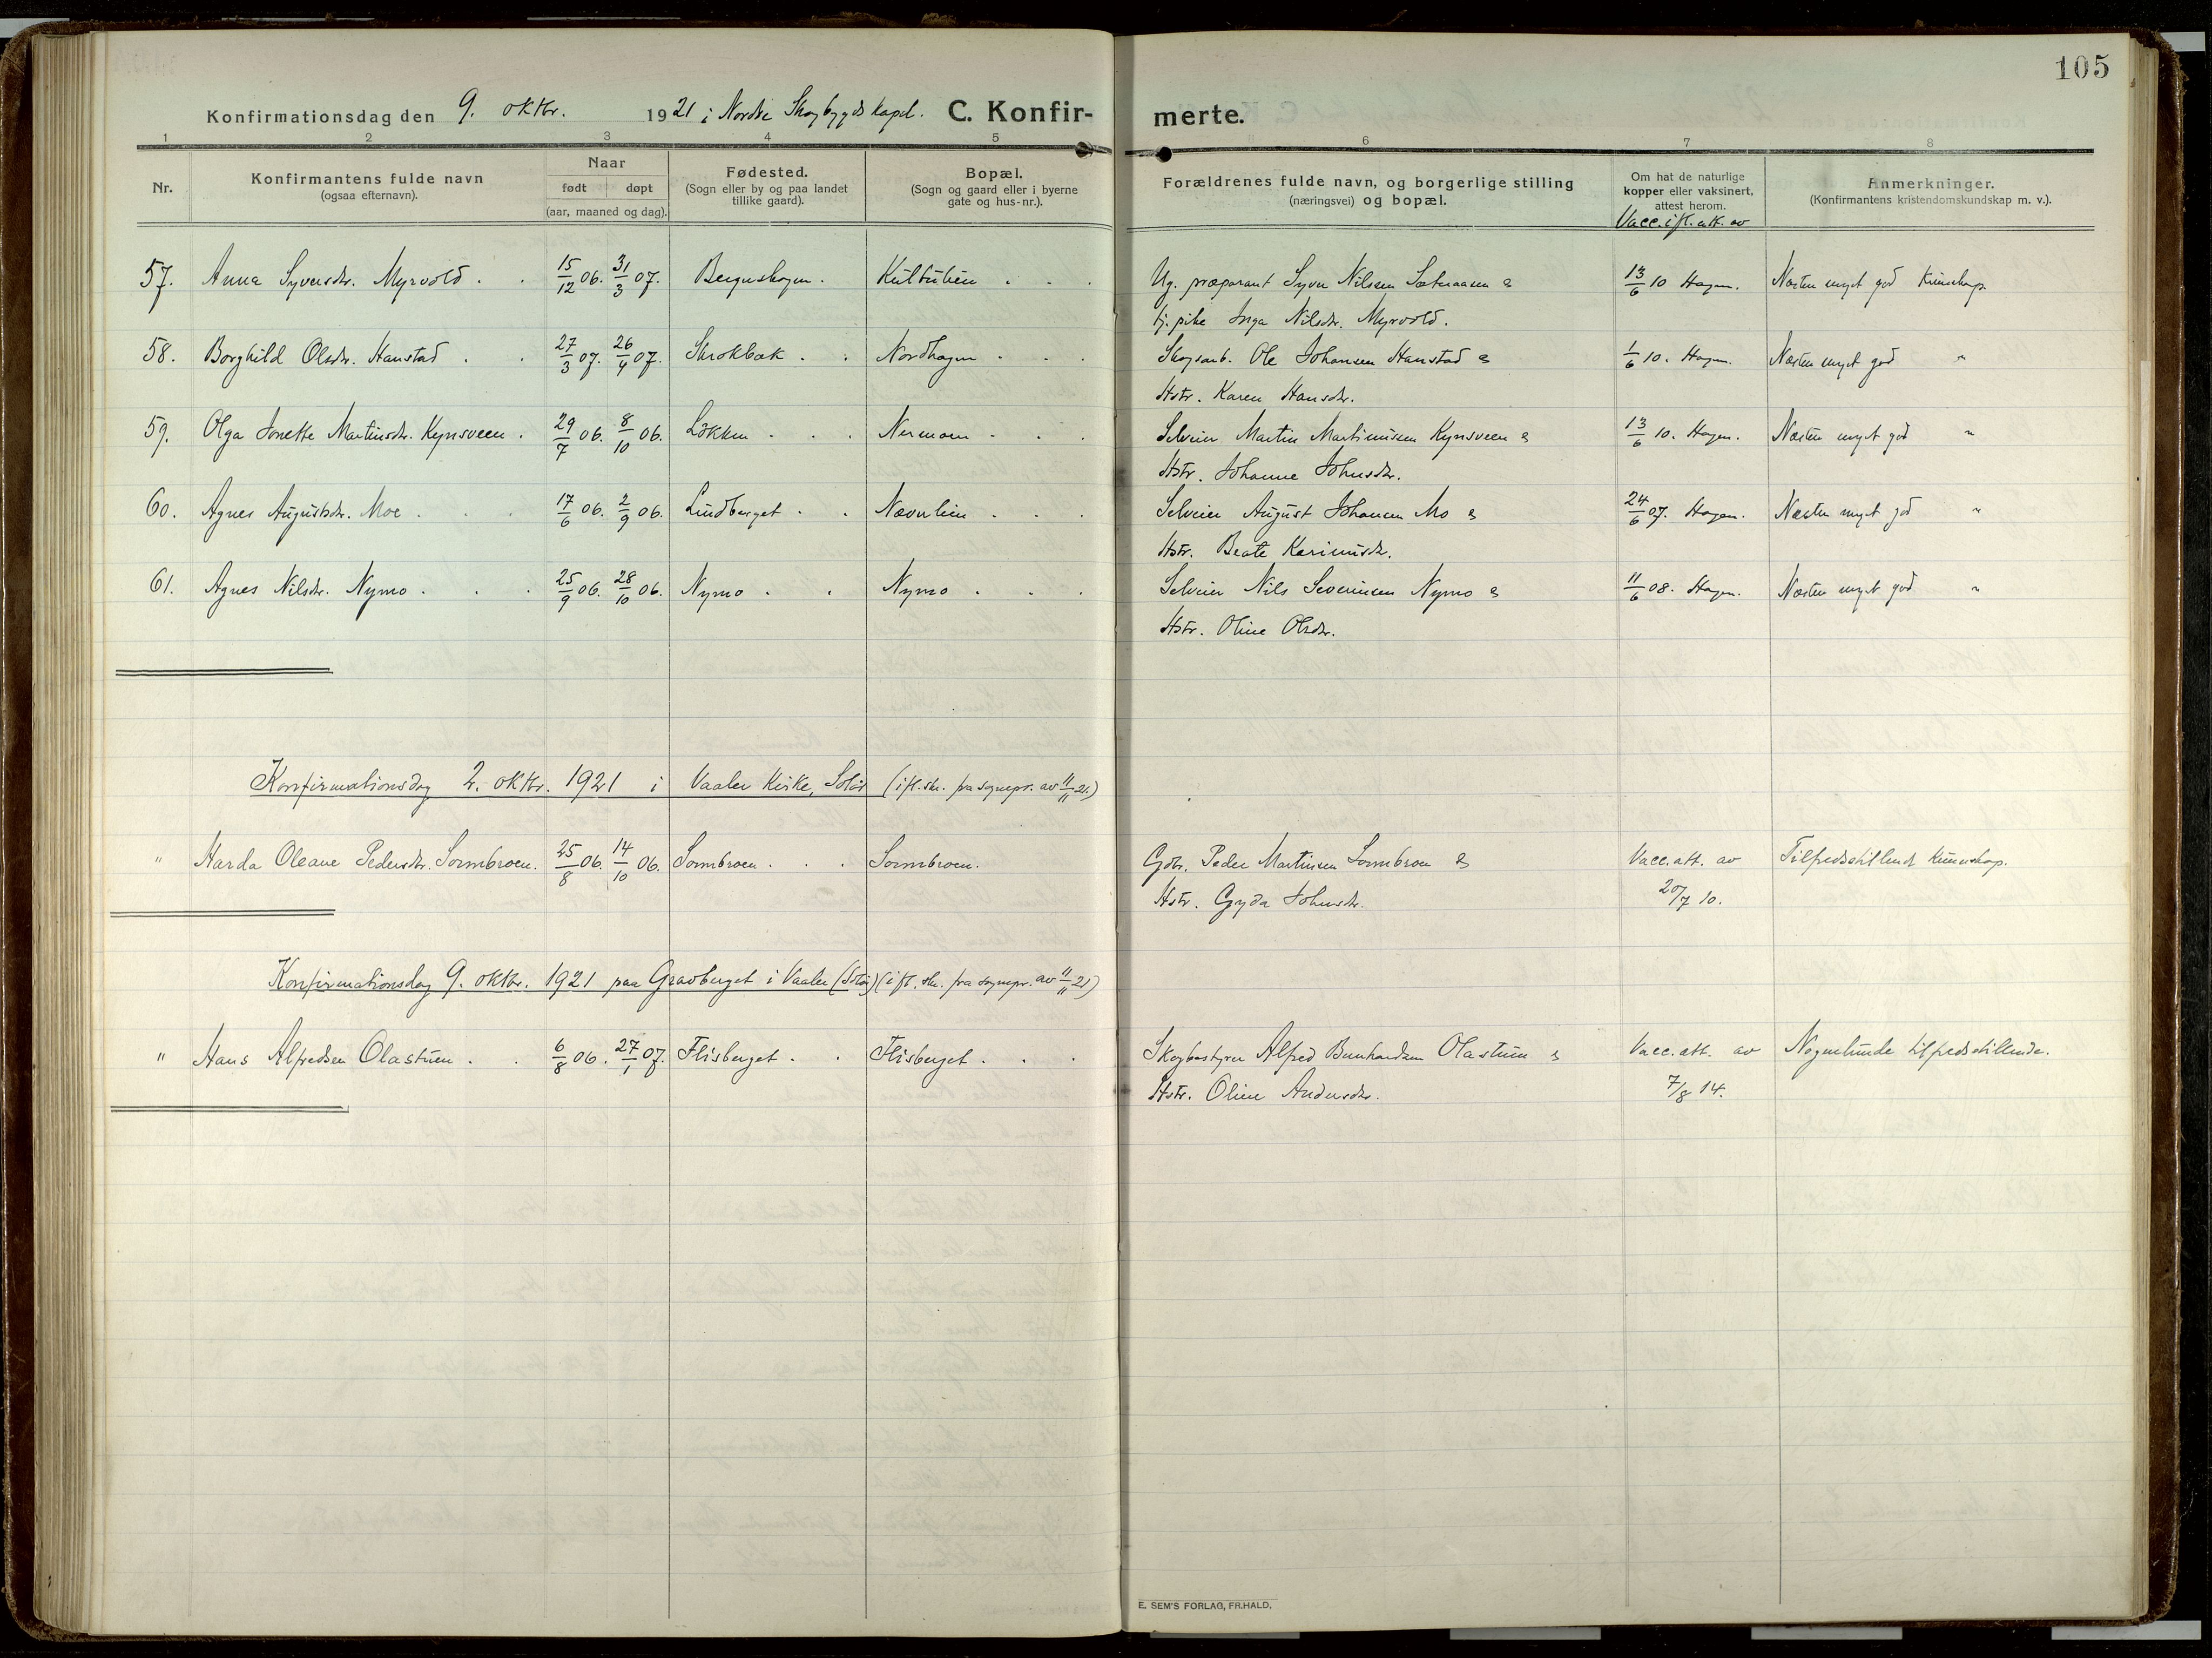 105
Konfirmationsdag den 9. oktbr. 1921 i Nordre Skogbygds kapel. C. Konfir- merte.
1 2 3 4 5 6 7 8
Nr.
Konfirmantens fulde navn
(ogsaa efternavn).
Naar
født døpt
(aar, maaned og dag).
Fødested.
(Sogn eller by og paa landet
tillike gaard).
Bopæl.
(Sogn og gaard eller i byerne
gate og hus-nr.).
Forældrenes fulde navn, og borgerlige stilling
(næringsvei) og bopæl.
Om hat de naturlige
kopper eller vaksinert,
attest herom.
Vacc. ifl. att. av
Anmerkninger.
(Konfirmantens kristendomskundskap m. v.).
57. Anna Syversdr. Myrvold . . 15/12 06. 31/3 07. Bergeskogen. Kulturlien . . . Ug. præparant Syver Nilsen Sæteraasen & 13/6 10 Hagen. Næsten meget god Kundskap.
tj. pike Inga Nilsdr. Myrvold.
58. Borghild Olsdr. Hanstad . . 27/3 07. 26/4 07. Skrokbæk . . Nordhagen . . . Skogsarb. Ole Johansen Hanstad & 1/6 10. Hagen. Næsten meget god "
Hstr. Karen Hansdr.
59. Olga Jonette Martinsdr. Kynsveen . 29/7 06. 8/10 06. Løkken . . . Nermoen . . . Selveier Martin Martinusen Kynsveen & 13/6 10. Hagen. Næsten meget god "
Hstr. Johanne Johnsdr.
60. Agnes Augustsdr. Moe . . . 17/6 06. 2/9 06. Lindberget . . Nævерlien . . . Selveier August Johansen Mo & 24/6 07. Hagen. Næsten meget god "
Hstr. Beate Karinusdr.
61. Agnes Nilsdr. Nymo . . . 25/9 06. 28/10 06. Nymo . . Nymo . . . Selveier Nils Severinsen Nymo & 11/6 08. Hagen. Næsten meget god "
Hstr. Oline Olsdr.
Konfirmationsdag 2. oktbr. 1921 i Vaaler Kirke, Solør (ifl. skr. fra sognepr. av 11/11 21.)
" Harda Oleane Pedersdr. Sormbroen. 25/8 06. 14/10 06. Sormbroen . . . Sormbroen. Gdbr. Peder Martinsen Sormbroen & Vacc. att. av Tilfredsstillende Kundskap.
Hstr. Gyda Johnsdr. 20/7 10.
Konfirmationsdag 9. oktbr. 1921 paa Gravberget i Vaaler (Solør) (ifl. skr. fra sognepr. av 11/11 21)
" Hans Alfredsen Olastuen . . 6/8 06. 27/1 07. Flisberget . . Flisberget . . . Skogbestyrer Alfred Bernhardsen Olastuen & Vacc. att. av Nogenlunde tilfredsstillende.
Hstr. Oline Andersdr. 7/8 14.
E. SEM'S FORLAG, FR.HALD.